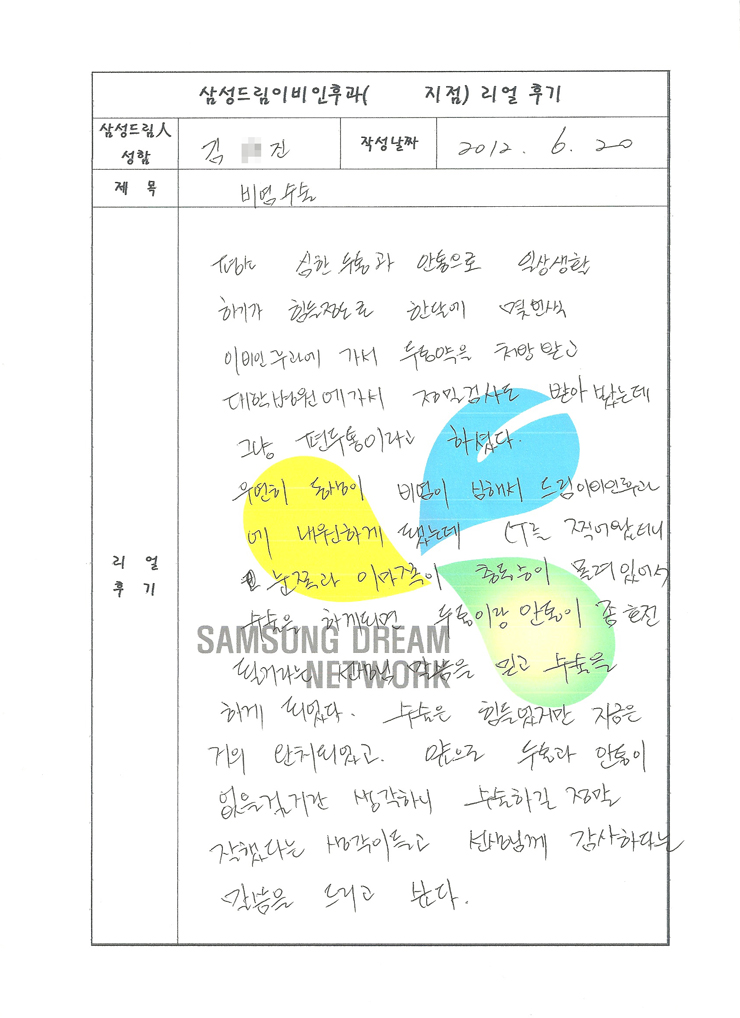 삼성드림이비인후과( 지점) 리얼 후기
삼성드림人
성함
김 진
작성날짜
2012. 6. 20
제 목
비염수술
리 얼
후 기
평소 심한 두통과 안통으로 일상생활
하기가 힘들정도로 한달에 몇번씩
이비인후과에 가서 두통약을 처방받고
대학병원에가서 정밀검사도 받아 봤는데
그냥 편두통이라고 하셨다.
우연히 동생이 비염이 심해서 드림이비인후과
에 내원하게 됐는데 CT를 찍어봤더니
눈쪽과 이마쪽이 충농증이 몰려있어서
수술을 하게되면 두통이랑 안통이 좀 호전
될거라는 선생님 말씀을 믿고 수술을
하게 되었다. 수술은 힘들었지만 지금은
거의 완치되었고. 앞으로 두통과 안통이
없을것 생각하니 수술하길 정말
잘했다는 생각이들고 선생님께 감사하다는
말씀을 드리고 싶다.
SAMSUNG DREAM
NETWORK